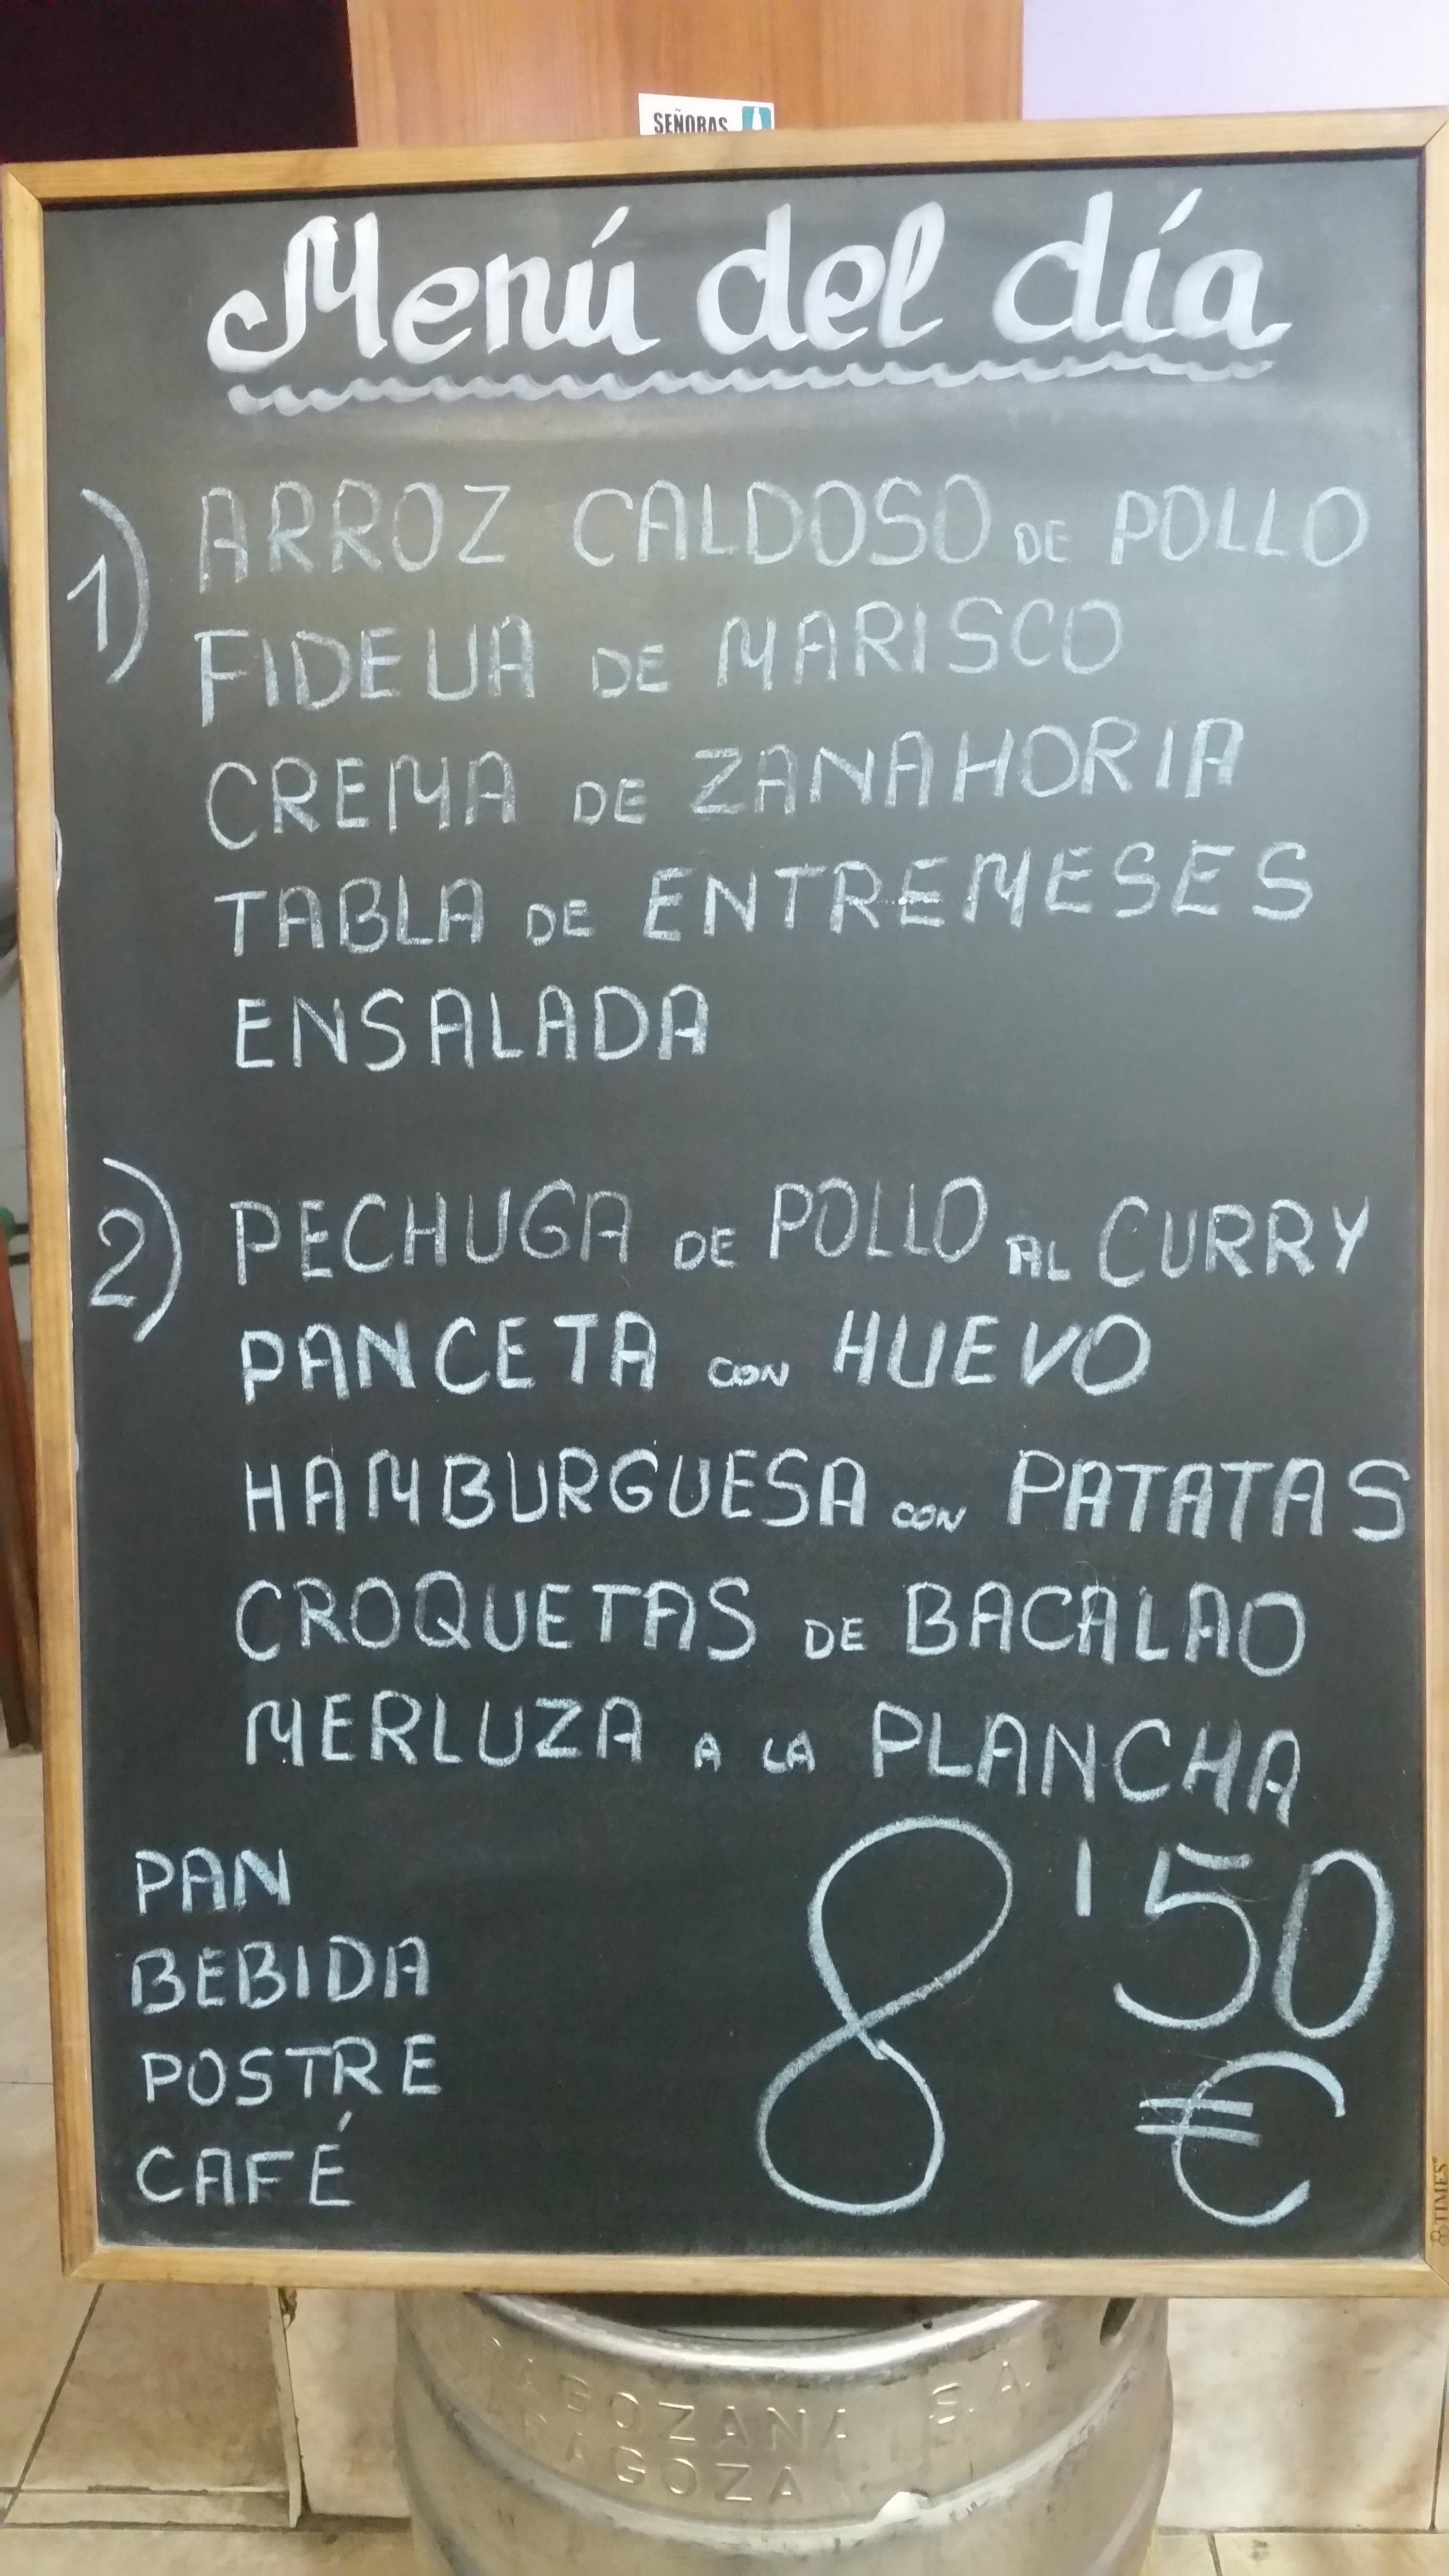 SEÑORAS
Menú del día
1) ARROZ CALDOSO DE POLLO
FIDEUA DE MARISCO
CREMA DE ZANAHORIA
TABLA DE ENTREMESES
ENSALADA
2) PECHUGA DE POLLO AL CURRY
PANCETA CON HUEVO
HAMBURGUESA CON PATATAS
CROQUETAS DE BACALAO
MERLUZA A LA PLANCHA
PAN
BEBIDA
POSTRE
CAFÉ
8'50
€
TIMES
AGOZANA S.A.
RAGOZA